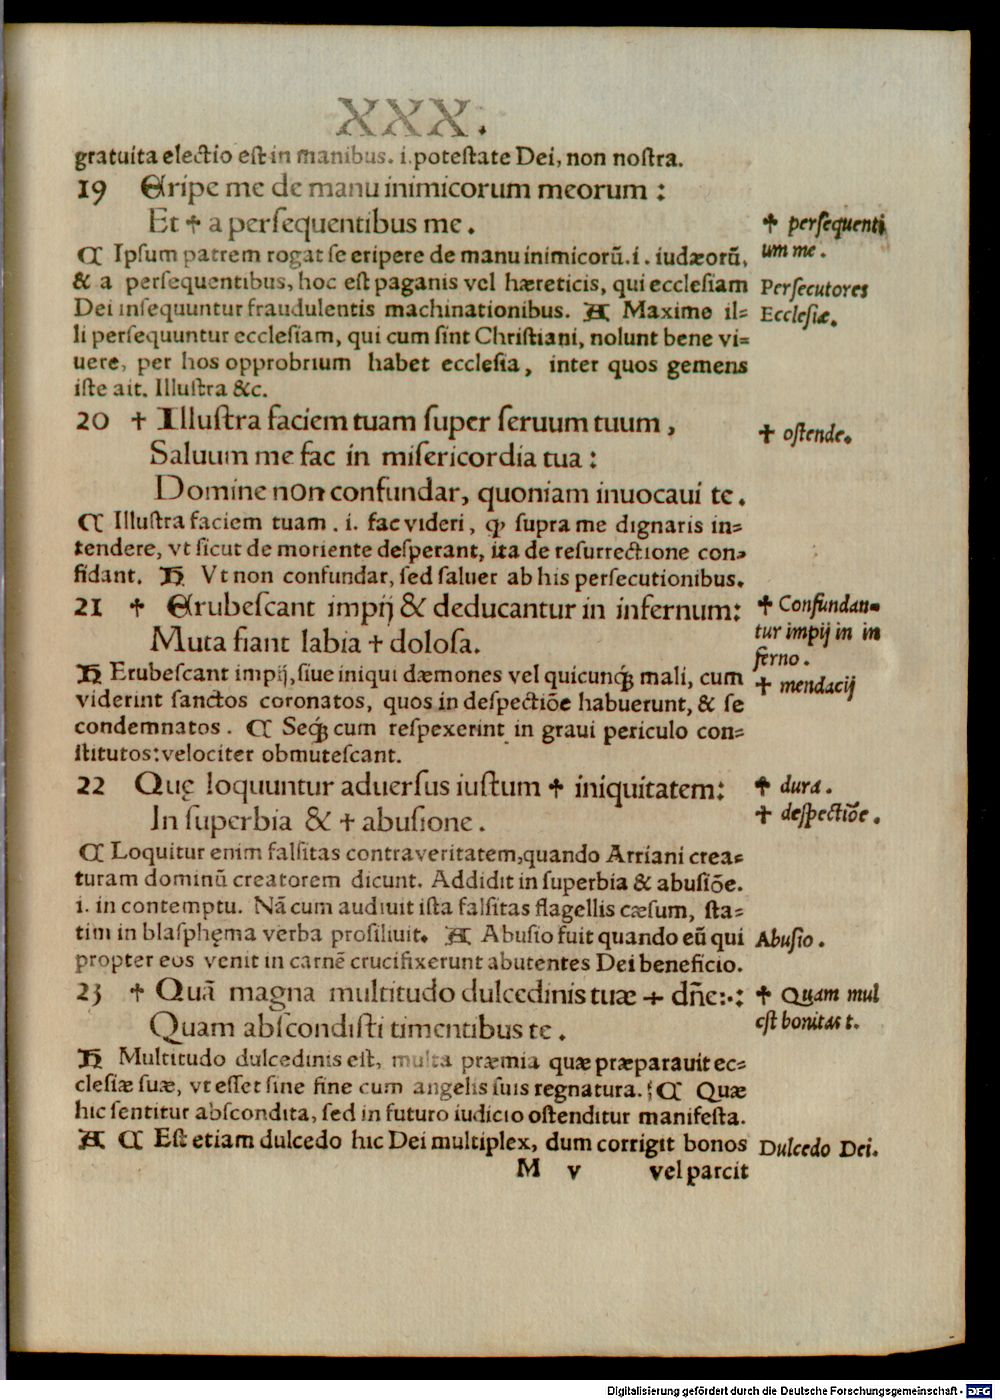 XXX.
gratuita electio est in manibus. i. potestate Dei, non nostra.
19 Eripe me de manu inimicorum meorum :
Et ✝ a persequentibus me.
✝ persequenti
um me.
C Ipsum patrem rogat se eripere de manu inimicorũ .i. iudæorũ,
& a persequentibus, hoc est paganis vel hæreticis, qui ecclesiam
Persecutores
Dei insequuntur fraudulentis machinationibus. A Maxime il=
Ecclesiæ.
li persequuntur ecclesiam, qui cum sint Christiani, nolunt bene vi=
uere, per hos opprobrium habet ecclesia, inter quos gemens
iste ait. Illustra &c.
20 ✝ Illustra faciem tuam super seruum tuum,
✝ ostende.
Saluum me fac in misericordia tua :
Domine non confundar, quoniam inuocaui te.
C Illustra faciem tuam . i. fac videri, ꝙ supra me dignaris in=
tendere, vt sicut de moriente desperant, ita de resurrectione con=
fidant. H Vt non confundar, sed saluer ab his persecutionibus.
21 ✝ Erubescant impij & deducantur in infernum:
✝ Confundan=
tur impij in in
ferno.
Muta fiant labia ✝ dolosa.
✝ mendacij
H Erubescant impij, siue iniqui dæmones vel quicunq; mali, cum
viderint sanctos coronatos, quos in despectiõe habuerunt, & se
condemnatos. C Seq; cum respexerint in graui periculo con=
stitutos: velociter obmutescant.
22 Quę loquuntur aduersus iustum ✝ iniquitatem:
✝ dura.
In superbia & ✝ abusione.
✝ despectiõe.
C Loquitur enim falsitas contra veritatem, quando Arriani crea=
turam dominũ creatorem dicunt. Addidit in superbia & abusiõe.
i. in contemptu. Nã cum audiuit ista falsitas flagellis cæsum, sta=
tim in blasphęma verba prosiliuit. A Abusio fuit quando eũ qui
Abusio.
propter eos venit in carnẽ crucifixerunt abutentes Dei beneficio.
23 ✝ Quã magna multitudo dulcedinis tuæ + dñe:·:
✝ Quam mul
est bonitas t.
Quam abscondisti timentibus te.
H Multitudo dulcedinis est, multa præmia quæ præparauit ec=
clesiæ suæ, vt esset sine fine cum angelis suis regnatura. C Quæ
hic sentitur abscondita, sed in futuro iudicio ostenditur manifesta.
A C Est etiam dulcedo hic Dei multiplex, dum corrigit bonos
Dulcedo Dei.
M v vel parcit
Digitalisierung gefördert durch die Deutsche Forschungsgemeinschaft - DFG